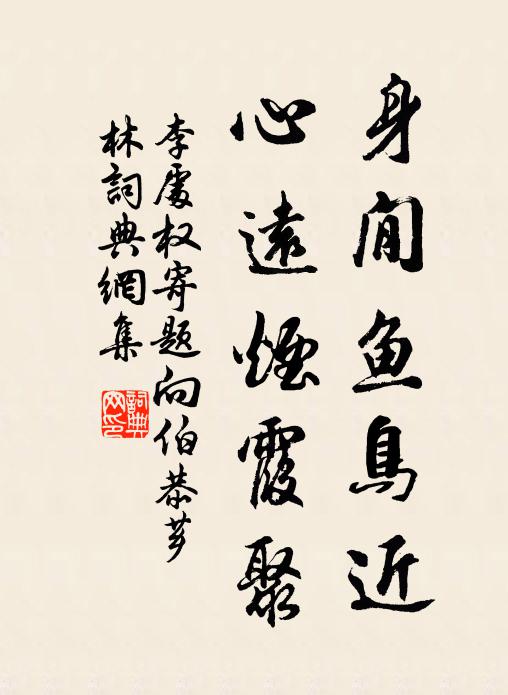 身閒鱼鳥近
心遠煙霞聚
李處权寄题向伯恭芗
林詞典網集
詞典
网印